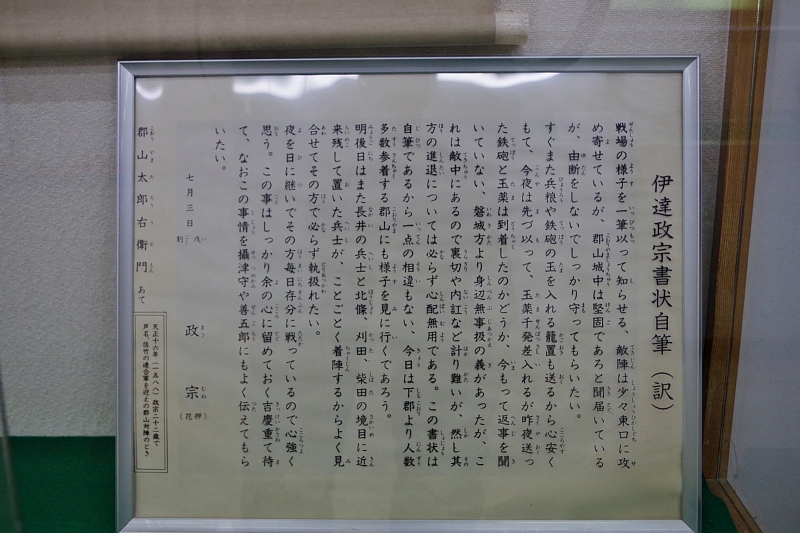 伊達政宗書状自筆（訳）
戦場の様子を一筆以って知らせる、敵陣は少々東口に攻
め寄せているが、郡山城中は堅固であろと聞届いている
が、由断をしないでしっかり守ってもらいたい。
すぐまた兵根や鉄砲の玉を入れる籠置も送るから心安く
もて、今夜は先づ以って、玉薬千発差入れるが昨夜送っ
た鉄砲と玉薬は到着したのかどうか、今もって返事を聞
いていない、磐城方より身辺無事扱の義があったが、こ
れは敵中にあるので裏切や内訌など計り難いが、然し其
方の進退については必らず心配無用である。この書状は
自筆であるから一点の相違もない、今日は下郡より人数
多数参着する郡山にも様子を見に行くであろう。
明後日はまた長井の兵士と北條　刈田　柴田の境目に近
来残して置いた兵士が、ことごとく着陣するからよく見
合せてその方で必らず執扱れたい。
夜を日に継いでその方毎日存分に戦っているので心強く
思う。この事はしっかり余の心に留めておく吉慶重て待
て、なおこの事情を攝津守や善五郎にもよく伝えてもら
いたい。
七月三日　戊刻
政宗（花押）
郡山太郎右衛門　あて
天正十六年（一五八八）政宗二十二歳で
芦名、佐竹の連合軍を迎えの郡山対陣のとき